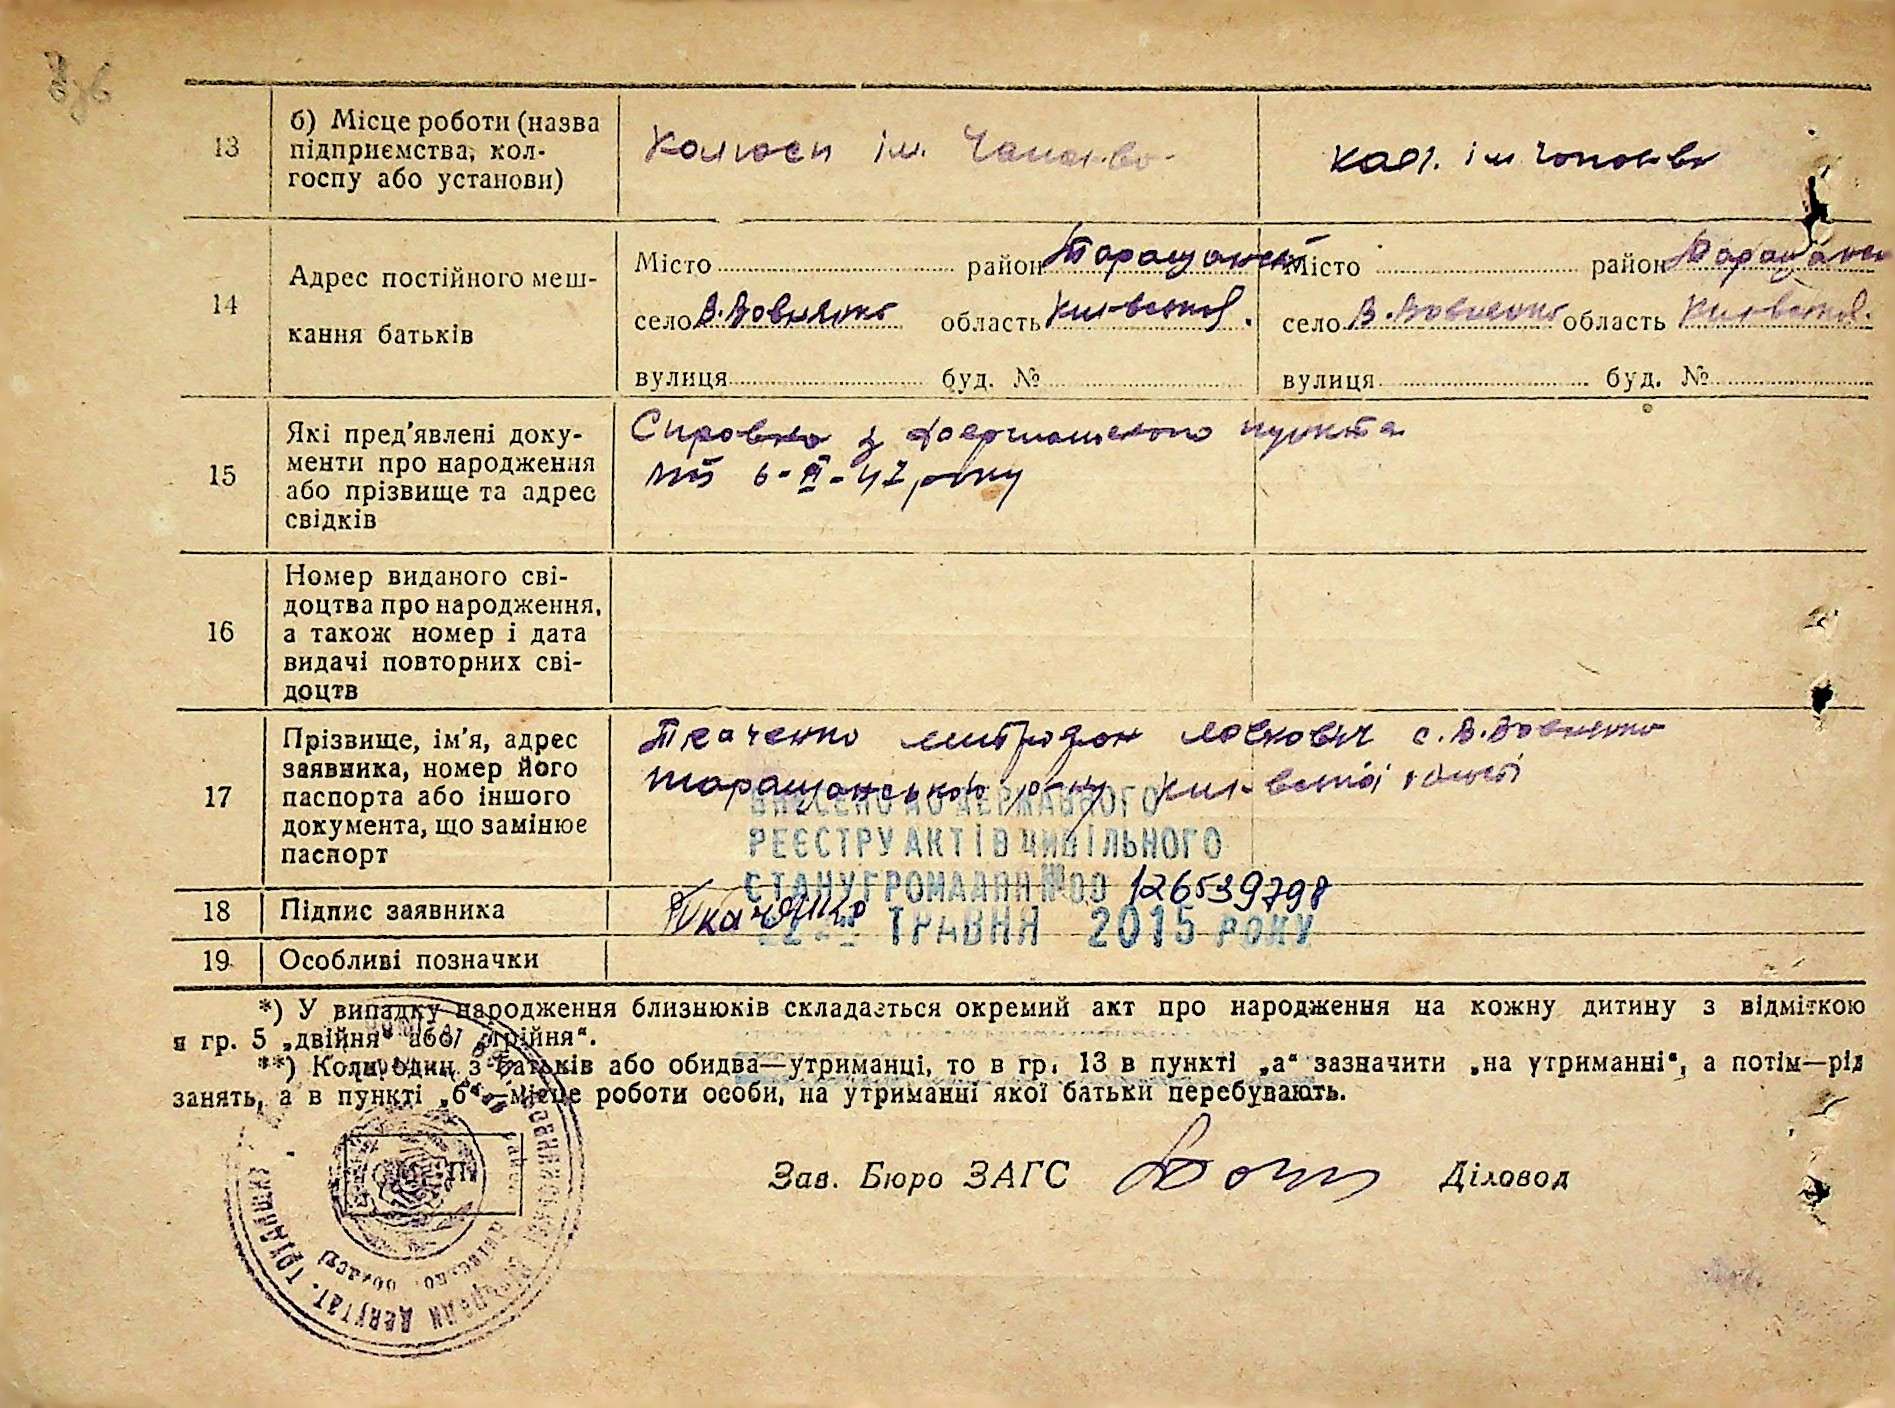 13
б) Місце роботи (назва
підприємства, кол-
госпу або установи)
Колгосп ім. Чапаєва
кол. ім Чапаєва
14
Адрес постійного меш-
кання батьків
Місто район Таращанськ
село В. Вовнянка область Київська.
вулиця буд. №
Місто район Таращанськ
село В. Вовнянка область Київська.
вулиця буд. №
15
Які пред'явлені доку-
менти про народження
або прізвище та адрес
свідків
Справка з пункта
року
16
Номер виданого сві-
доцтва про народження,
а також номер і дата
видачі повторних сві-
доцтв
17
Прізвище, ім'я, адрес
заявника, номер його
паспорта або іншого
документа, що замінює
паспорт
Ткаченко Митрофан с. В. Вовнянка
Таращанського р-ну Київської області
ВНЕСЕНО ДО ДЕРЖАВНОГО
РЕЄСТРУ АКТІВ ЦИВІЛЬНОГО
СТАНУ ГРОМАДЯН №00 126539798
22 ТРАВНЯ 2015 РОКУ
18
Підпис заявника
Ткаченко
19
Особливі позначки
*) У випадку народження близнюків складається окремий акт про народження на кожну дитину з відміткою
в гр. 5 „двійня“ або „трійня“.
**) Коли один з батьків або обидва—утриманці, то в гр. 13 в пункті „а“ зазначити „на утриманні“, а потім—рід
занять, а в пункті „б“—місце роботи особи, на утриманні якої батьки перебувають.
Зав. Бюро ЗАГС Діловод
депутат. трудящих
області